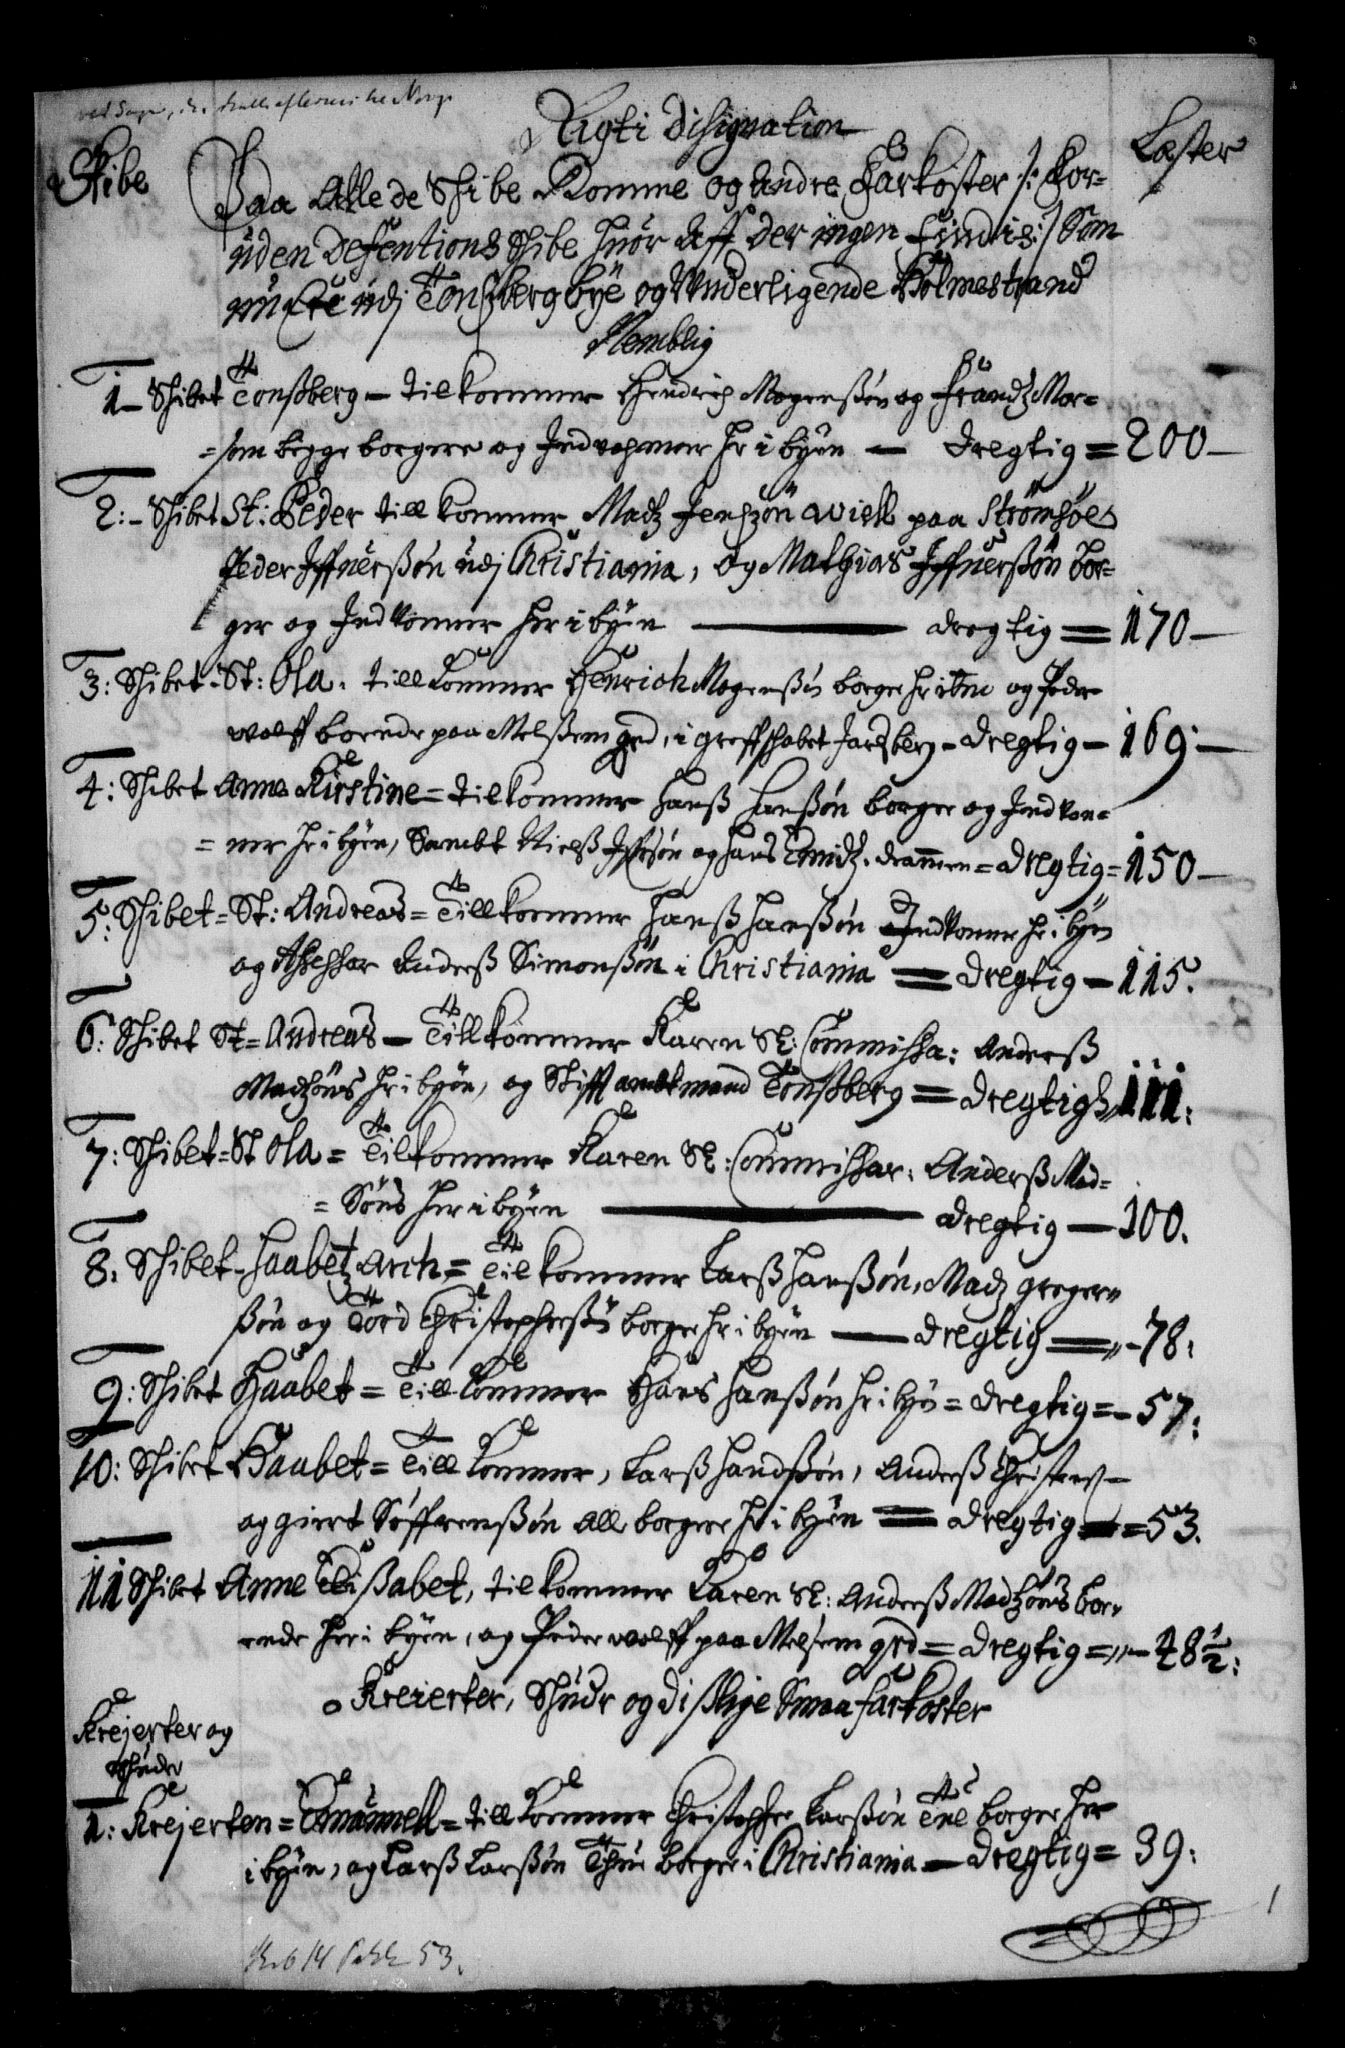 Rigti Disignation
Skibe
Læster
Paa Alle de Skibe Komme og andre Farkoster /: For-
uden Defentions Skibe huor Aff der ingen Findis :/ Som
nu Ere udj Tonsberg bye og Underligende Holmestrand
Nemblig
1 - Skibet Tonsßberg - tilkommer Hendrich Mogenßøn og Frandtz Mor-
=sen begge borgere og Indvohner her i byen - Dregtig = 200 -
2: - Skibet St: Peder till kommer Madz Jenszøn Wiell paa Strømsøe
Peder Iffuerßøn udj Christiania, og Mathias Iffuerßøn Bor-
ger og Indvoner her i byen - dregtig = 170 -
3: Skibet - St: Ola. till kommer Henrich Mogenßøn borger her ibm og Peder
wolff boende paa Melßem grd, i greffskabet Jarlsberg - dregtig - 169: -
4: Skibet Anna Kirstine = tilkommer Hanß Hanßøn borger og Indvon-
= ner her i byen, Sambt Nielß Ifssøn og Hans Smidtz. drammen = dregtig = 150 -
5: Skibet = St: Andreas = Tillkommer Hanß Hanßøn Indvoner her i byen
og Assessor Anderß Simonßøn i Christiania = dregtig - 115.
6: Skibet St = Andreas - Tillkommer Karen Sl: Commissa: Anderß
Madzøns her i byen, og Stifft amtmand Tonßberg = dregtigh 111:
7: Skibet = St Ola = Tilkommer Karen Sl: Commissar: Anderß Mad-
= Søns her i byen - dregtig - 100.
8: Skibet - Haabetz Arch = Tilkommer Larß Hanßøn, Madz greger-
ßøn og Tord Christopherßøn borger her i byen - dregtig = - 78:
9: Skibet Haabet = Till kommer Hans Hanßøn her i byen = dregtig = - 57:
10: Skibet Haabet = Till kommer, Larß Handßøn, Anderß Christens -
og giert Søffrenßøn Alle borgere her i byen = dregtig = 53.
11 Skibet Anne Elißabet, tilkommer Karen Sl: Anderß Madzøns bo-
ende her i byen, og Peder wolff paa Melsem grd = dregtig = - 48 1/2:
Kreierter, Skuder og dißlige Smaa farkoster
Krejerter og
Skuder
1: Krejerten = Emanuell = till kommer Christopher Larßøn borger her
i byen, og Larß Larßøn borger i Christiania - dregtig = 39:
1
53.